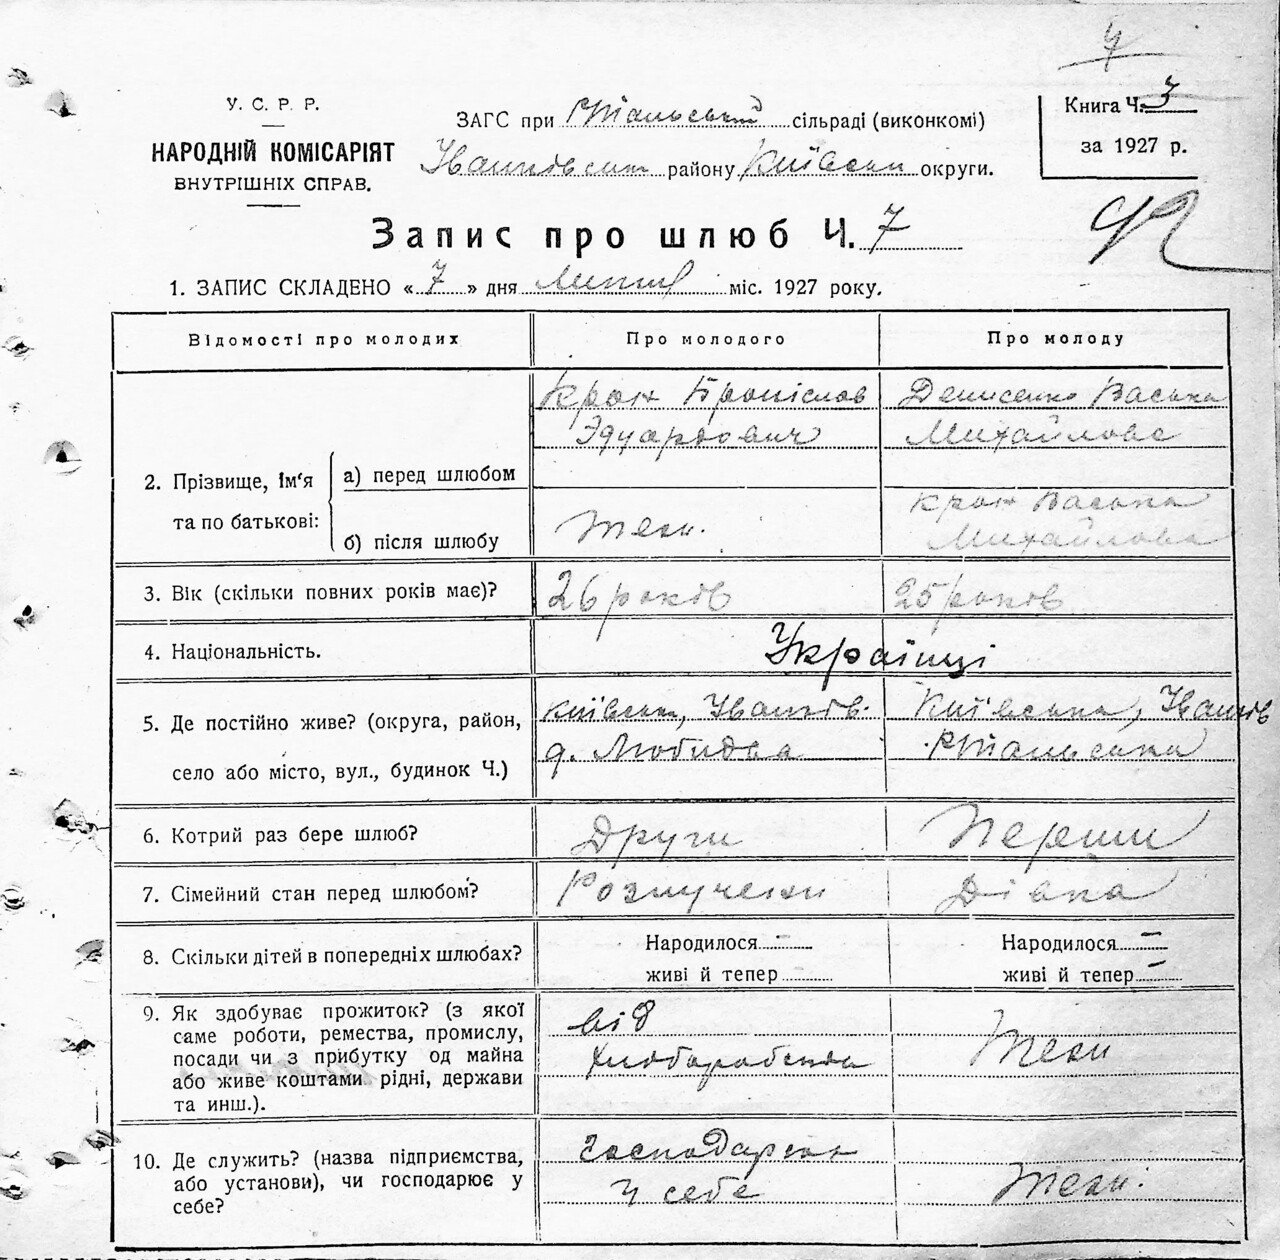 4
У. С. Р. Р.
НАРОДНІЙ КОМІСАРІЯТ
ВНУТРІШНІХ СПРАВ.
ЗАГС при сільраді (виконкомі)
району Київськи округи.
Книга Ч. 3
за 1927 р.
92
Запис про шлюб Ч. 7
1. ЗАПИС СКЛАДЕНО «7» дня міс. 1927 року.
Відомості про молодих
Про молодого
Про молоду
2. Прізвище, Ім'я
та по батькові:
а) перед шлюбом
б) після шлюбу
Крон Броніслав
Эдуардович
Денисенко Васька
Михайлова
теж.
Крон Васька
Михайлова
3. Вік (скільки повних років має)?
26 років
25 років
4. Національність.
Українці
5. Де постійно живе? (округа, район,
село або місто, вул., будинок Ч.)
Київськ, Іванків.
Київська, Іванків
6. Котрий раз бере шлюб?
Други
Перши
7. Сімейний стан перед шлюбом?
Розлучени
Дівка
8. Скільки дітей в попередніх шлюбах?
Народилося –
живі й тепер
Народилося –
живі й тепер –
9. Як здобуває прожиток? (з якої
саме роботи, ремества, промислу,
посади чи з прибутку од майна
або живе коштами рідні, держави
та инш.).
від
теж
10. Де служить? (назва підприємства,
або установи), чи господарює у
себе?
у себе
теж.